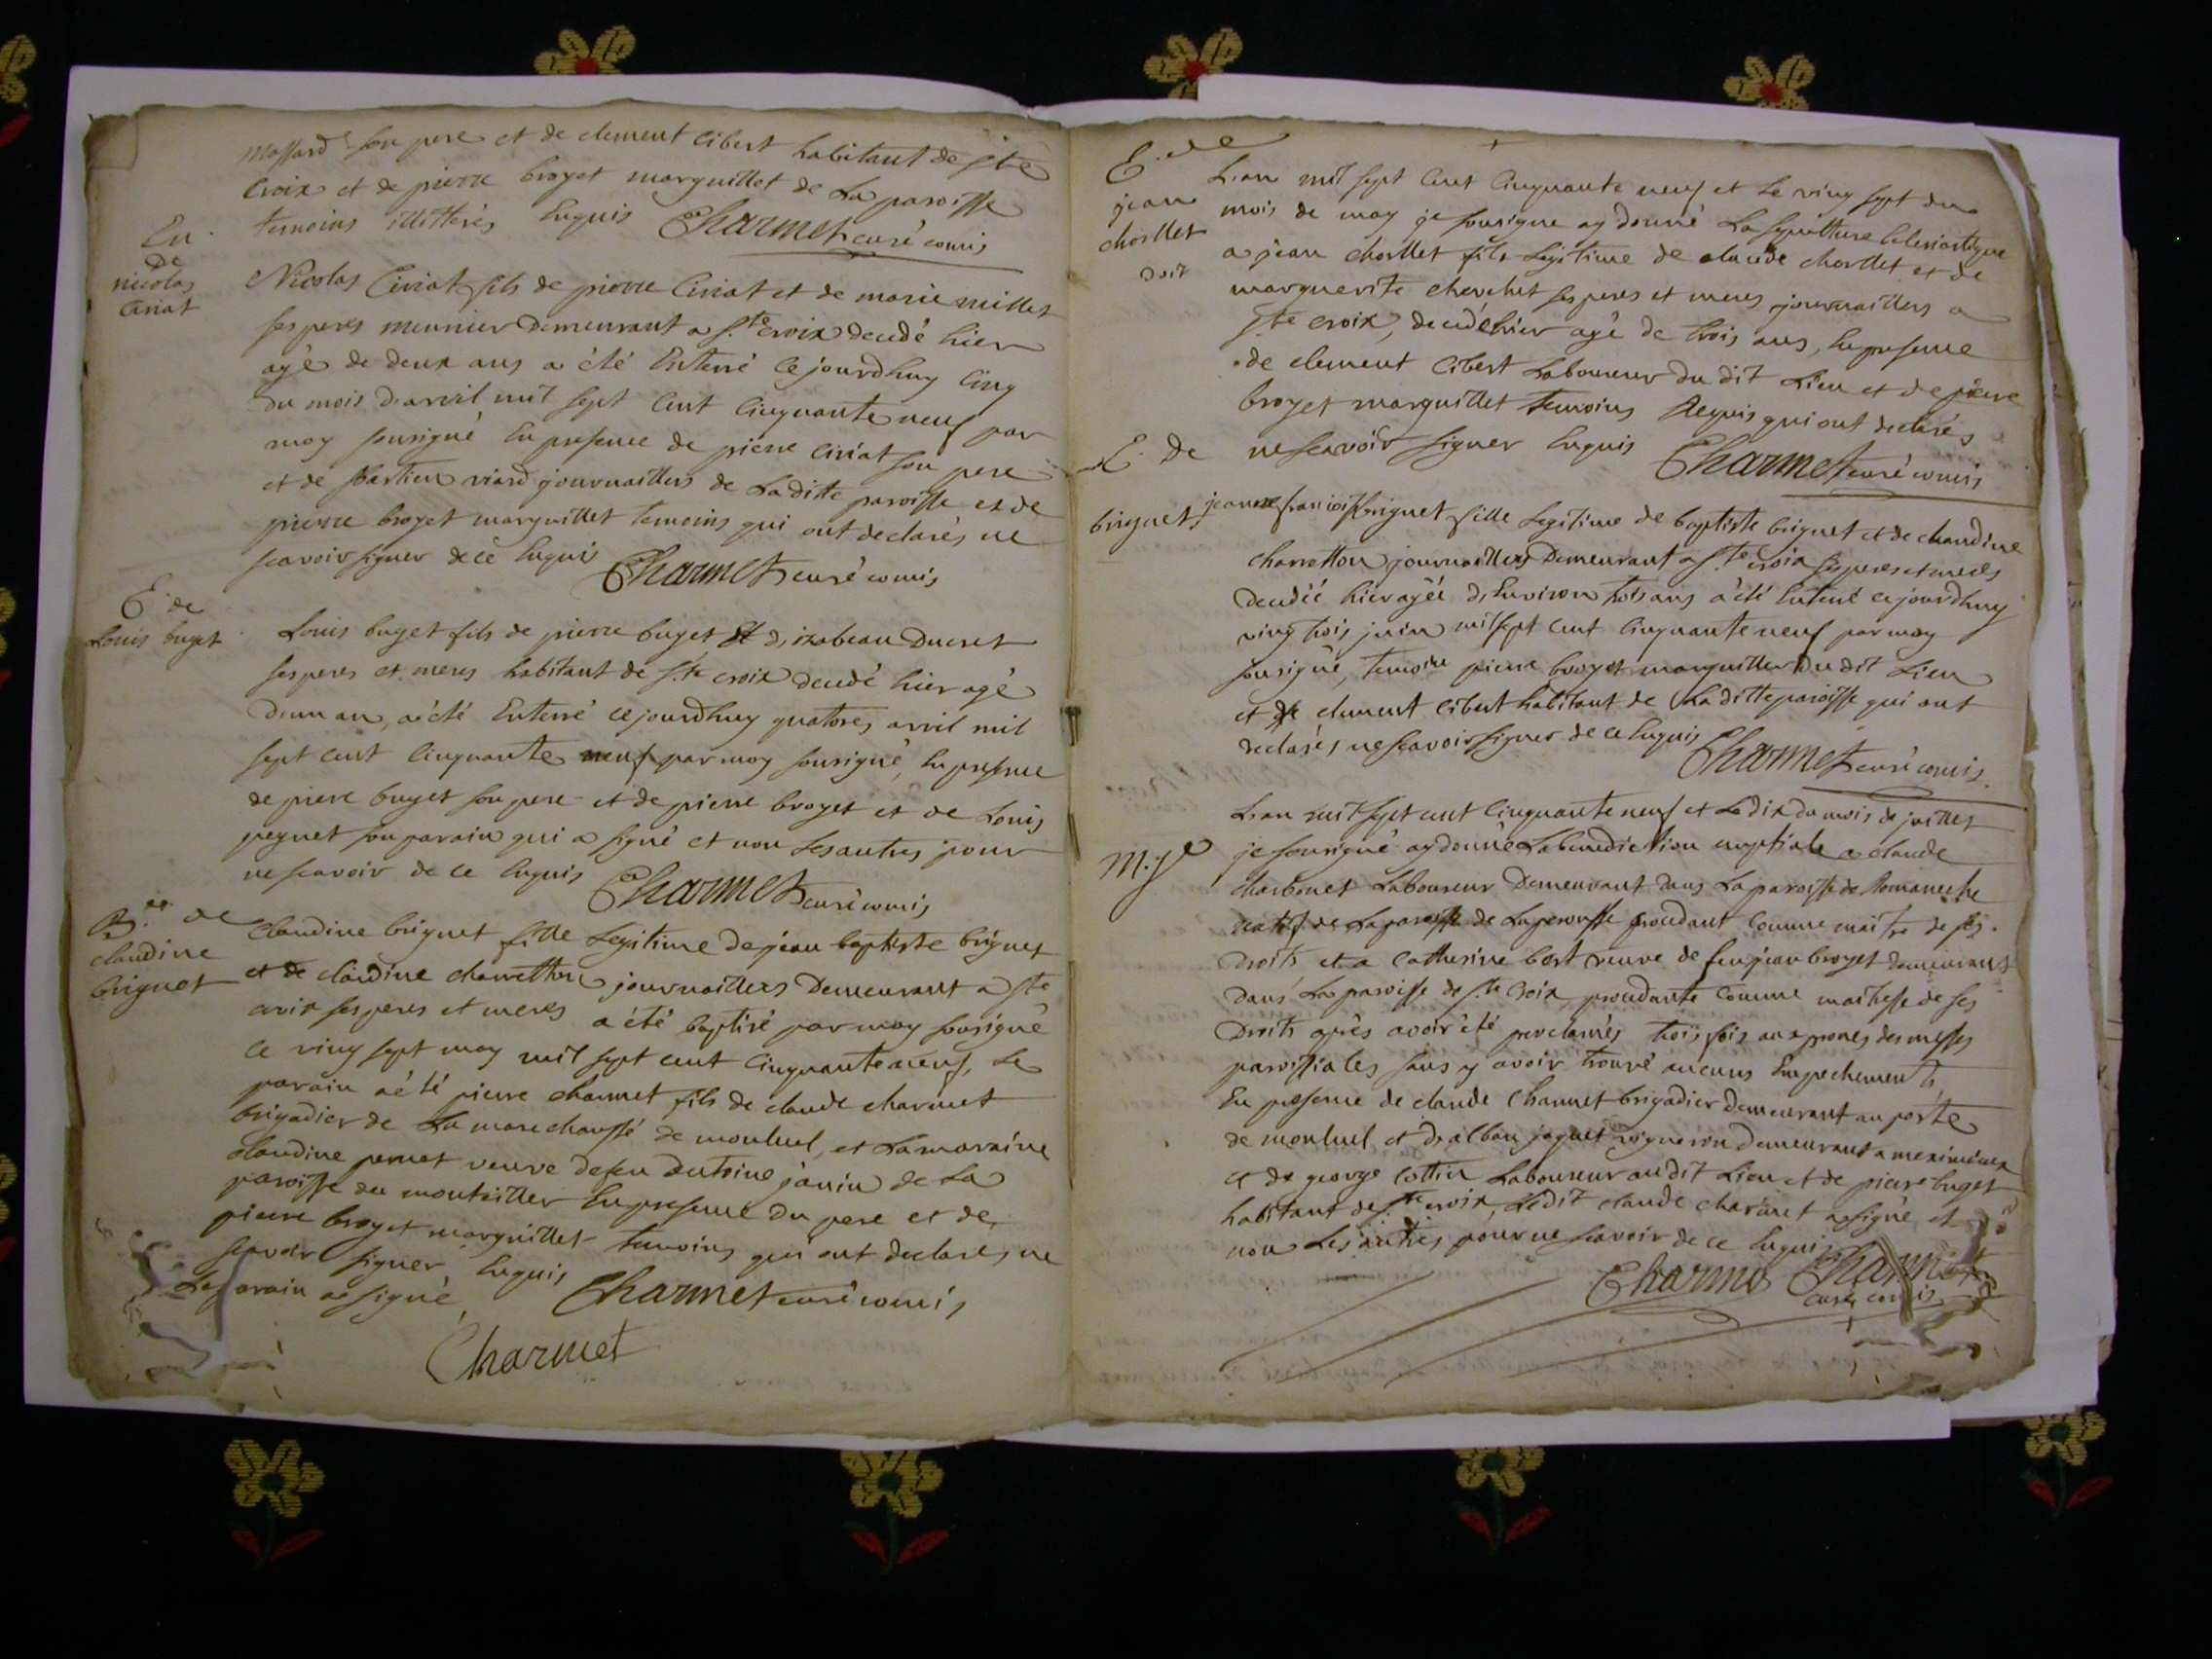 massard son pere et de clement Cibert habitant de ste
Croix et de pierre broyet marguillet de La paroisse
temoins illitterés Enquis Charmet curé comis
En.
De
nicolas
Ciriat
Nicolas Ciriat fils de pierre Ciriat et de marie millet
ses peres meunier Demeurant a Ste Croix decedé hier
agé de deux ans a été Enterré Ce jourdhuy Cinq
du mois davril mil sept Cent Cinquante neuf par
moy sousigné En presence de pierre Ciriat son pere
et de bastien viard journaillers de Laditte paroisse et de
pierre broyet marguillet temoins qui ont declarés ne
scavoir signer de cé Enquis Charmet curé comis
E. de
Louis buget
Louis buget fils de pierre buget et d'izabeau Ducret
ses peres et meres habitant de Ste croix decedé hier agé
dun an, a été Enterré cejourdhuy quatorze avril mil
sept cent Cinquante neuf par moy sousigné, En presence
de piere buget son pere et de pierre broyet et de Louis
peguet son parain qui a signé et non Les autres pour
ne scavoir de ce Enquis Charmet curé comis
B. de
claudine
briguet
Claudine briguet fille Legitime de jean baptiste briguet
et de claudine charretton journaillers Demeurant a ste
croix ses peres et meres a été baptisé par moy sousigné
Ce ving sept may mil sept cent Cinquante neuf, Le
parain a été pierre charmet fils de claude charmet
brigadier de La marechaussé de montluel, et La maraine
Claudine pernet veuve de feu Antoine janin de La
paroisse du montellier En presence du pere et de
pierre broyet marguillet temoins qui ont declarés ne
scavoir signer Enquis Charmet curé comis
Le parain a signé
Charmet
E. de
jean
chorllet
Doit
Lan mil sept Cent Cinquante neuf et Le ving sept du
mois de may je sousigne ay donné La sepulture
a jean chorllet fils Legitime de claude chorllet et de
marguerite cherchet ses peres et meres journaillers a
Ste croix, decedé hier agé de trois ans, En presence
de clement Cibert Laboureur du dit Lieu et de piere
broyet marguillet temoins Requis qui ont declarés
ne scavoir signer Enquis Charmet curé comis
E. de
briguet
jeanne briguet fille Legitime de baptiste briguet et de claudine
charretton journaillers Demeurant a Ste Croix ses peres et meres
decedée hier agéé d'Environ trois ans a été Enterré ce jourdhuy
ving trois juin mil sept cent Cinquante neuf par moy
sousigné, temoin pierre broyet marguillier Du dit Lieu
et de clement Cibert habitant de La ditte paroisse qui ont
declarés ne scavoir signer de ce Enquis Charmet curé comis
M.ge
Lan mil sept cent Cinquante neuf et Le dix du mois de juillet
je sousigné ay donné La benediction nuptiale a claude
charbonet Laboureur Demeurant dans La paroisse de Romaneche
natif de La paroisse de Laperousse procedant comme maitre de ses
Droits et a Catherine bert veuve de feu jean broyet demeurant
dans La paroisse de Ste Croix, procedante comme maitresse de ses
Droits après avoir été proclamés trois fois aux prones des messes
paroissiales sans y avoir trouvé aucuns Empechements
En presence de claude Charmet brigadier demeurant au poste
de montluel et d'alban joguet vigneron demeurant a meximieux
et de george Cottin Laboureur au dit Lieu et de pierre buget
habitant de Ste croix, Le dit claude charmet a signé et
non Les autres pour ne scavoir de ce Enquis
Charmet Charmet
curé comis